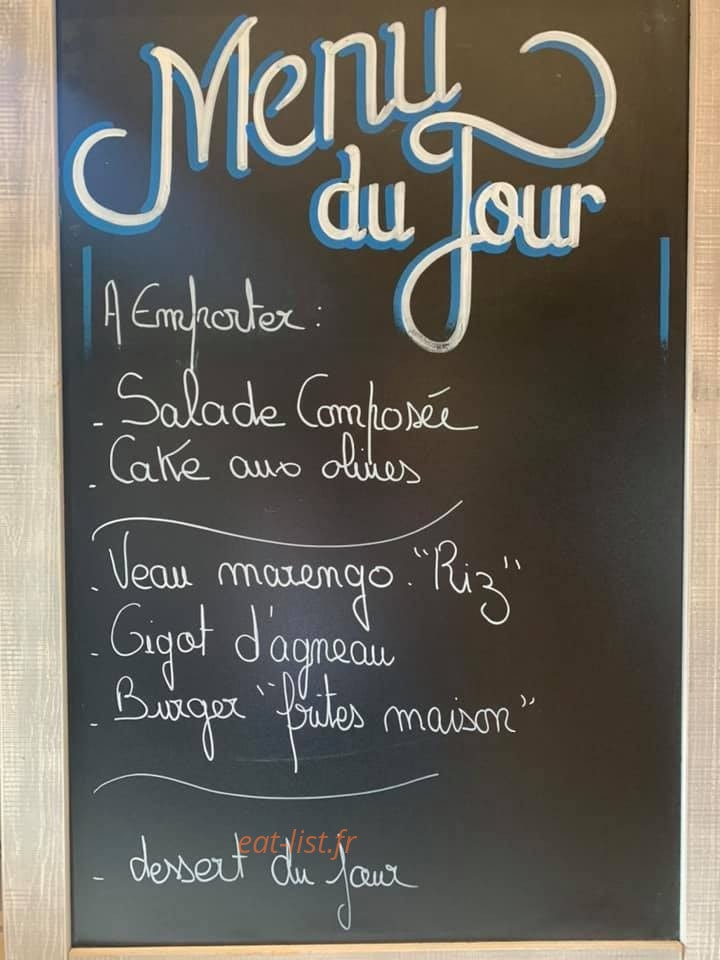 Menu
du Jour
A Emporter :
- Salade Composée
- Cake aux olives
- Veau marengo . "Riz"
- Gigot d'agneau
- Burger "frites maison"
eat-list.fr
- dessert du jour